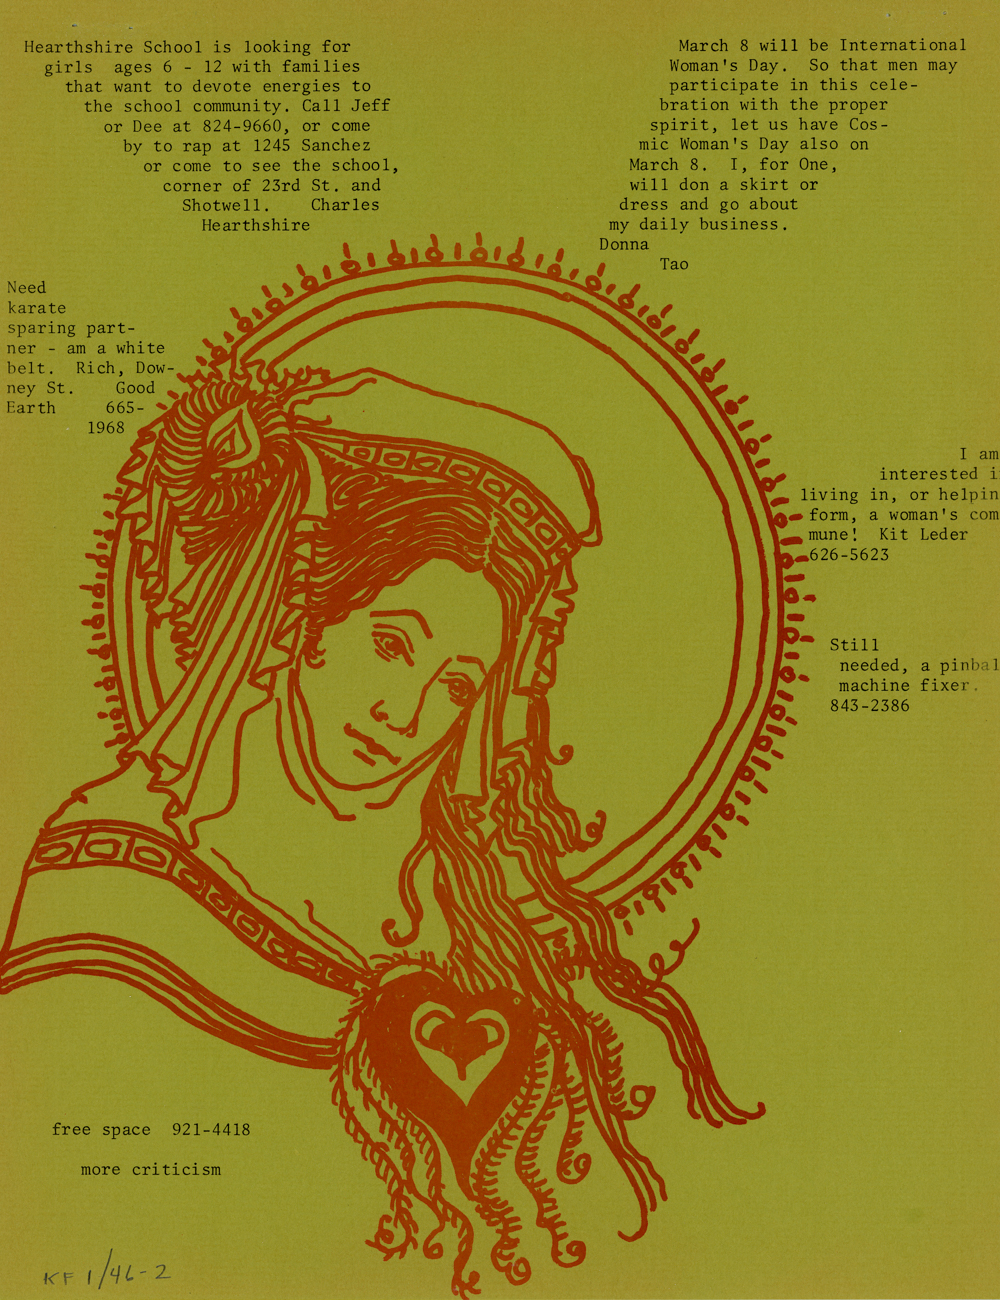 Hearthshire School is looking for
girls ages 6 - 12 with families
that want to devote energies to
the school community. Call Jeff
or Dee at 824-9660, or come
by to rap at 1245 Sanchez
or come to see the school,
corner of 23rd St. and
Shotwell. Charles
Hearthshire
March 8 will be International
Woman's Day. So that men may
participate in this cele-
bration with the proper
spirit, let us have Cos-
mic Woman's Day also on
March 8. I, for One,
will don a skirt or
dress and go about
my daily business.
Donna
Tao
Need
karate
sparing part-
ner - am a white
belt. Rich, Dow-
ney St. Good
Earth 665-
1968
I am
interested i
living in, or helpin
form, a woman's com
mune! Kit Leder
626-5623
Still
needed, a pinbal
machine fixer.
843-2386
free space 921-4418
more criticism
KF 1/46-2